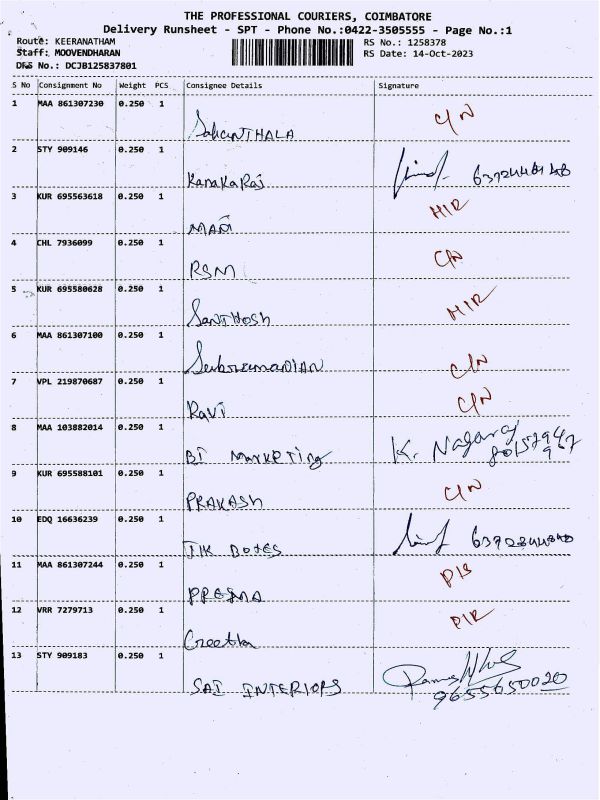 THE PROFESSIONAL COURIERS, COIMBATORE
Delivery Runsheet - SPT - Phone No.:0422-3505555 - Page No.:1
Route: KEERANATHAM RS No.: 1258378
Staff: MOOVENDHARAN RS Date: 14-Oct-2023
DRS No.: DCJB125837801
S No Consignment No Weight PCS Consignee Details Signature
1 MAA 861307230 0.250 1
SakanTHALA C/N
2 STY 909146 0.250 1
KanaKaRaj
3 KUR 695563618 0.250 1
MANI HIR
4 CHL 7936099 0.250 1
RSM C/N
5 KUR 695580628 0.250 1
SanTHosh HIR
6 MAA 861307100 0.250 1
SubramaniAN C/N
7 VPL 219870687 0.250 1
Ravi C/N
8 MAA 103882014 0.250 1
BI MarKETing K. Nagaraj
9 KUR 695588101 0.250 1
PRAKASH C/N
10 EDQ 16636239 0.250 1
11 MAA 861307244 0.250 1
PREMA
12 VRR 7279713 0.250 1
Geetha
13 STY 909183 0.250 1
SAI INTERIORS 9655650020